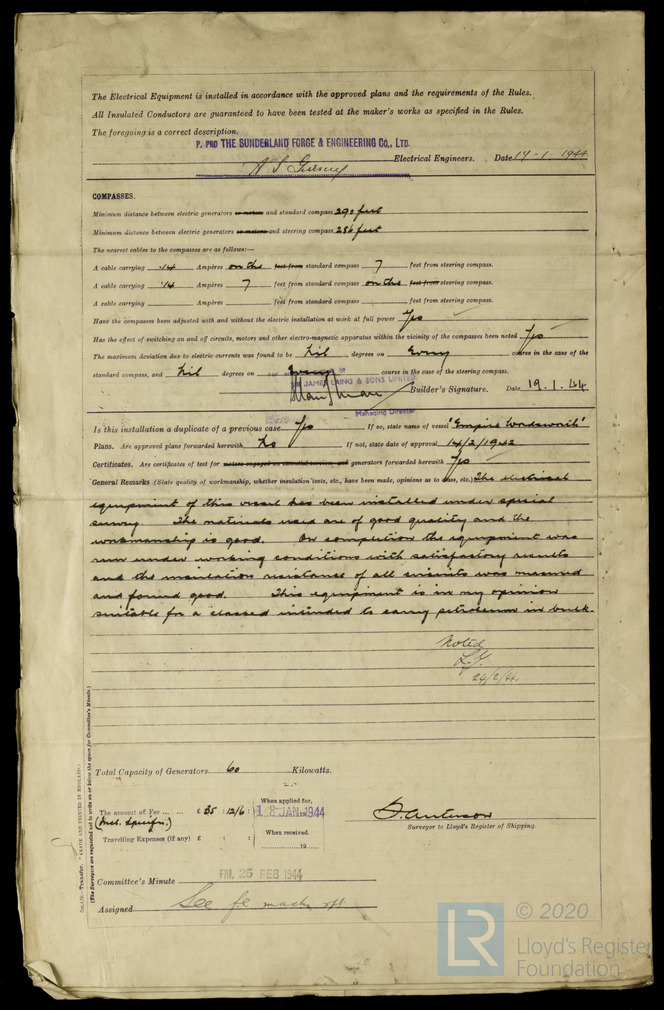 The Electrical Equipment is installed in accordance with the approved plans and the requirements of the Rules.
All Insulated Conductors are guaranteed to have been tested at the maker's works as specified in the Rules.
The foregoing is a correct description.
P. PRO THE SUNDERLAND FORGE & ENGINEERING CO., LTD.
Electrical Engineers. Date 17-1. 1944
COMPASSES.
Minimum distance between electric generators or motors and standard compass 290 feet
Minimum distance between electric generators or motors and steering compass 286 feet
The nearest cables to the compasses are as follows:—
A cable carrying .14 Ampères on the feet from standard compass 7 feet from steering compass.
A cable carrying .14 Ampères 7 feet from standard compass on the feet from steering compass.
A cable carrying Ampères feet from standard compass feet from steering compass.
Have the compasses been adjusted with and without the electric installation at work at full power Yes
Has the effect of switching on and off circuits, motors and other electro-magnetic apparatus within the vicinity of the compasses been noted Yes
The maximum deviation due to electric currents was found to be Nil degrees on Every course in the case of the
standard compass, and Nil degrees on Every course in the case of the steering compass.
SIR JAMES LAING & SONS LIMITED
Builder's Signature. Date 19.1.44
Managing Director
Is this installation a duplicate of a previous case Yes If so, state name of vessel "Empire Wordsworth"
Plans. Are approved plans forwarded herewith No If not, state date of approval 14/2/1942
Certificates. Are certificates of test for motors engaged on essential services and generators forwarded herewith Yes
General Remarks (State quality of workmanship, whether insulation tests, etc., have been made, opinions as to class, etc.) The electrical
equipment of this vessel has been installed under special
survey. The materials used are of good quality and the
workmanship is good. On completion the equipment was
run under working conditions with satisfactory results
and the insulation resistance of all circuits was measured
and found good. This equipment is in my opinion
suitable for a classed intended to carry petroleum in bulk.
Noted
24/2/44
Total Capacity of Generators 60 Kilowatts.
The amount of Fee ... ... £ 35 : 12/6 :
When applied for,
18 JAN 1944
(Incl. Specifn.)
Travelling Expenses (if any) £ : :
When received.
19
Surveyor to Lloyd's Register of Shipping.
Committee's Minute FRI. 25 FEB 1944
Assigned See fe machy rpt
Transfer.
(MADE AND PRINTED IN ENGLAND.)
(The Surveyors are requested not to write on or below the space for Committee's Minute.)
LR
© 2020
Lloyd's Register
Foundation